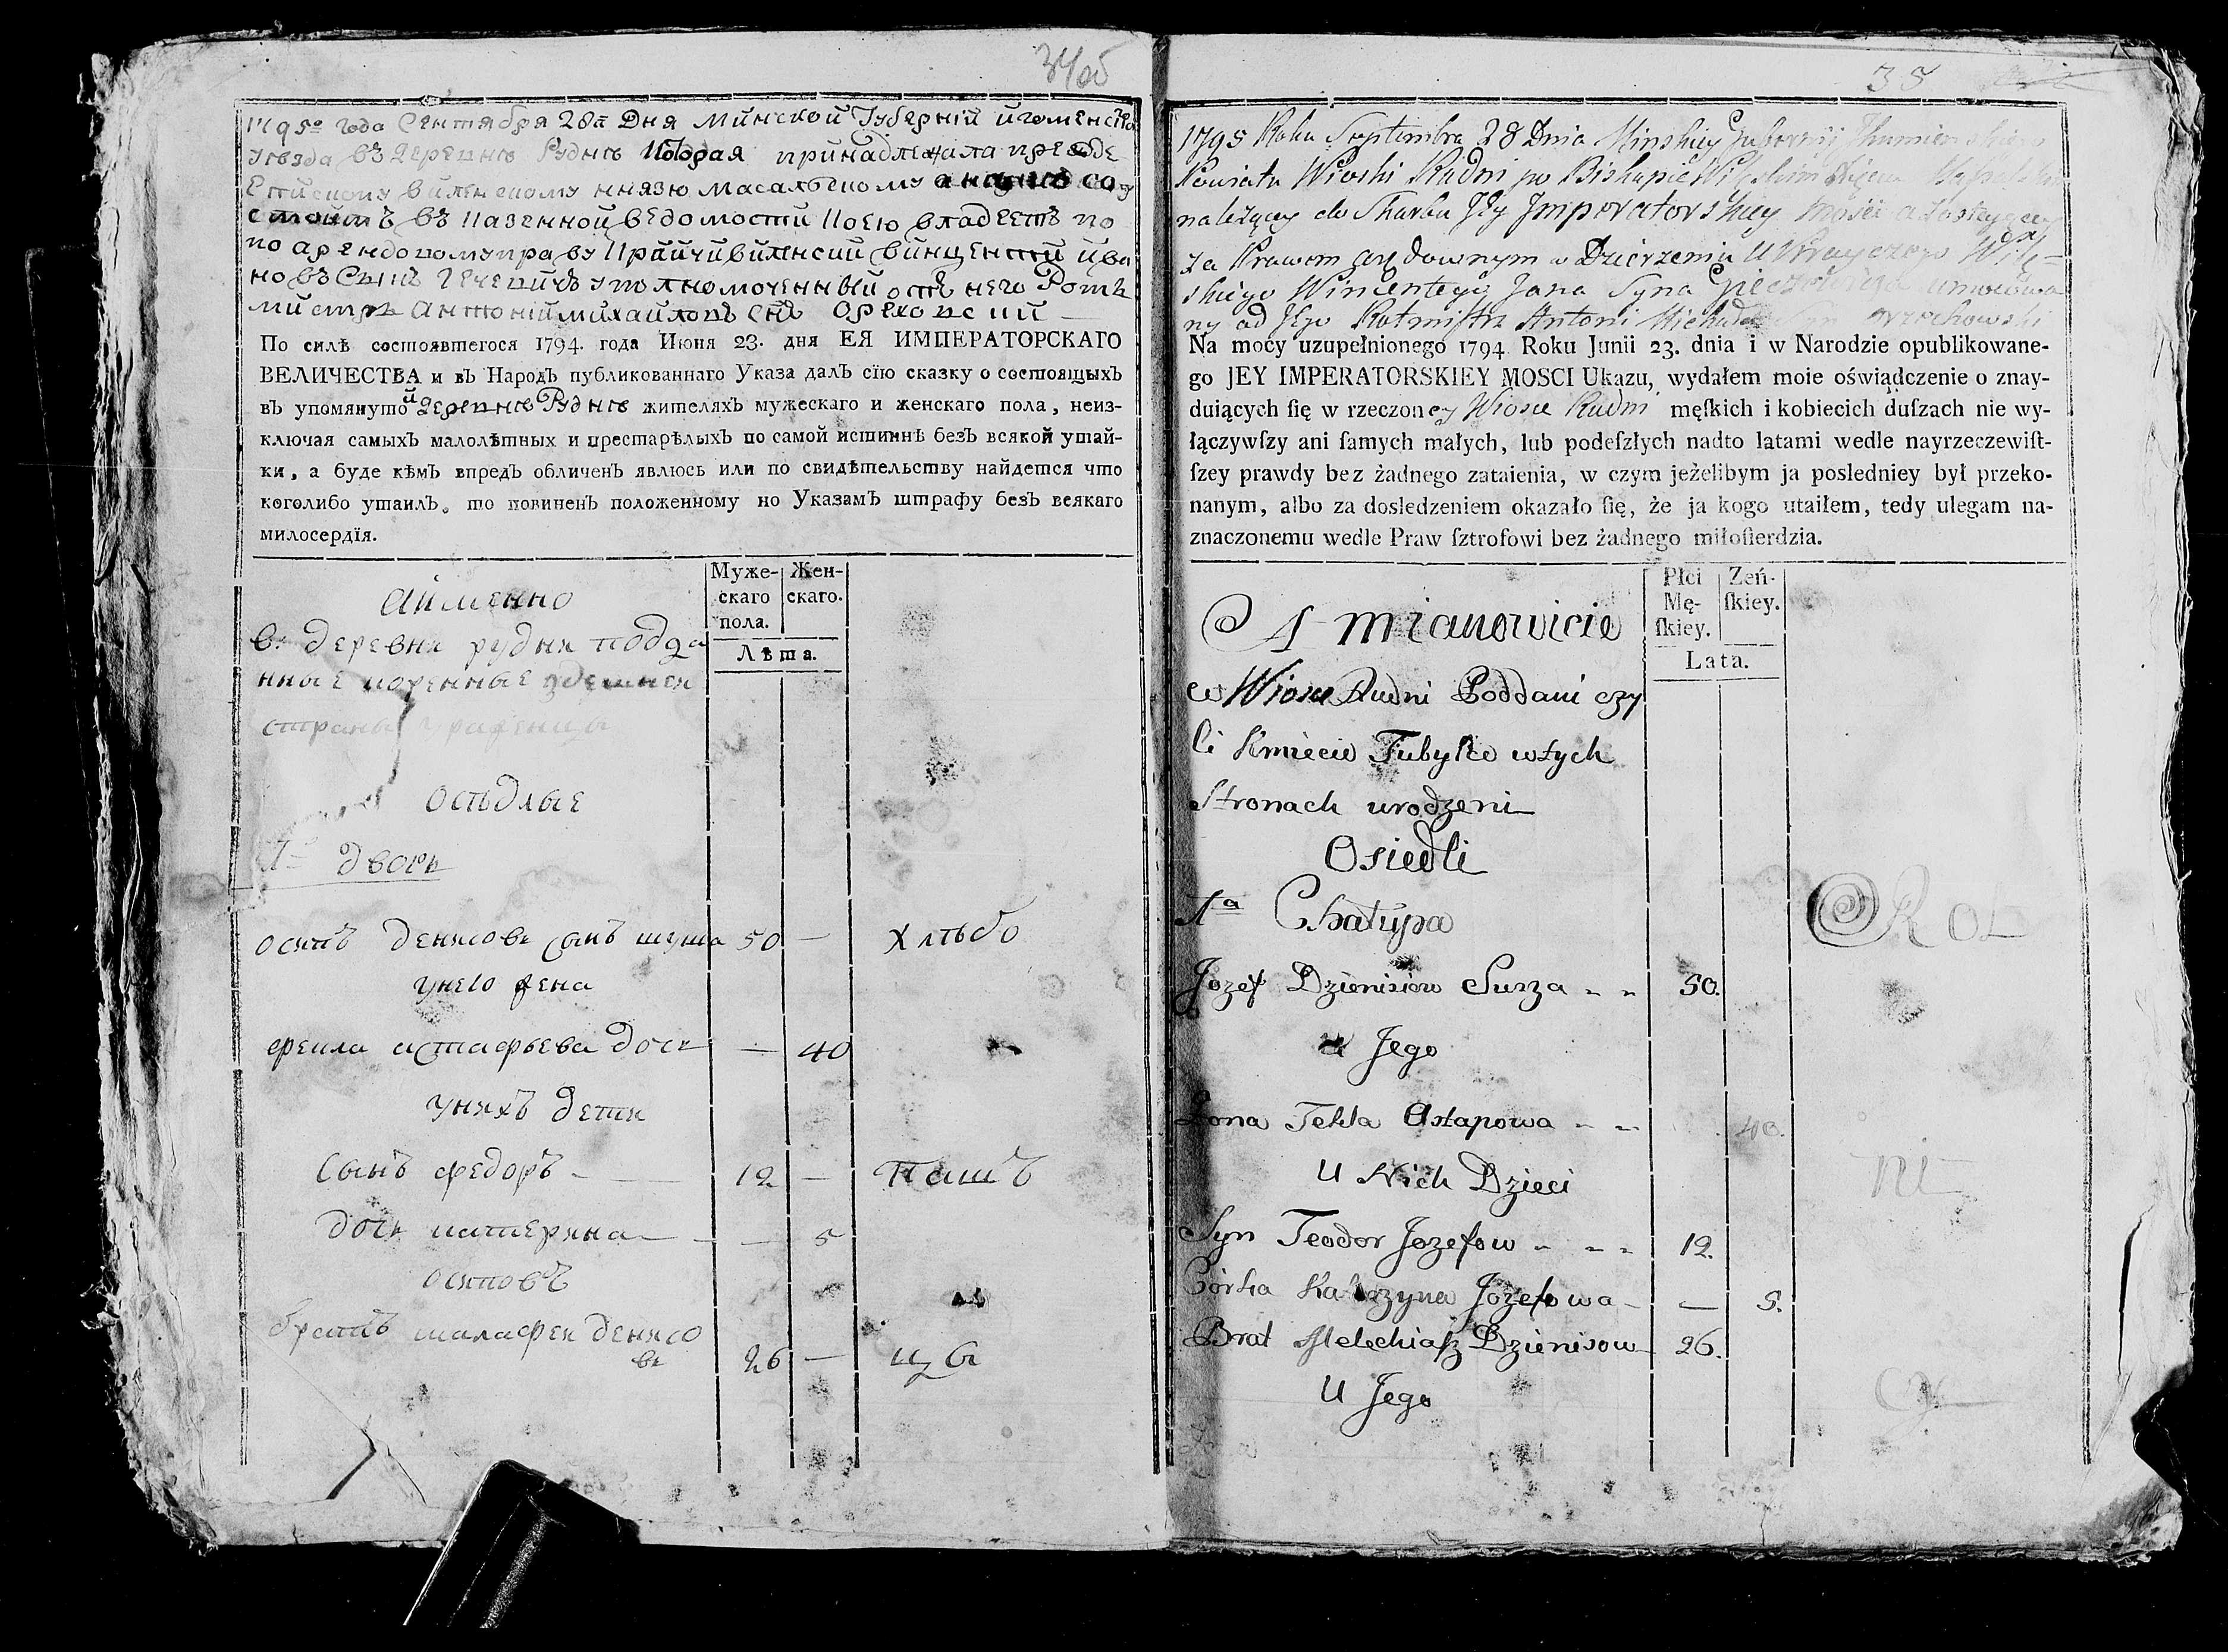 34об
1795го года Сентября 28го Дня Минской Губернїй игоменска
уезда въ деревне Рудне которая принадлежала прежде
Епископу виленскому князю Масальскому а ныне со
стоитъ въ казенной ведомости коею владеетъ по
по арендовому праву Крайчий виленский винцентий ива
новъ Сынъ Гечевичъ уполномоченный отъ него Ротъ
мистръ Антоний михайловъ Снъ Ореховский
По силѣ состоявшегося 1794. года Июня 23. дня ЕЯ ИМПЕРАТОРСКАГО
ВЕЛИЧЕСТВА и въ Народъ публикованнаго Указа далъ сїю сказку о состоящыхъ
въ упомянутой деревне Рудне жителяхъ мужескаго и женскаго пола, неиз-
ключая самыхъ малолѣтныхъ и престарѣлыхъ по самой истиннѣ безъ всякой утай-
ки, а буде кѣмъ впредъ обличенъ явлюсь или по свидѣтельству найдется что
коголибо утаилъ, то повиненъ положенному по Указамъ штрафу безъ всякаго
милосердїя.
Муже-
скаго
пола.
Жен-
скаго.
Лѣта.
Аименно
въ деревня рудня подда
нные коренные здешнея
страны урафенцы
оседлые
1й дворъ
осипъ денисовъ сынъ шуша 50 — хлебо
унего жена
фекла астафьева дочь — 40
унихъ дети
Сынъ федоръ — 12 — пашъ
дочь катерина — — 5
осиповъ
братъ малафеи денисо
въ 26 — цы
35
1795 Roku Septembra 28 Dnia Minskiey Gubernij Ihumienskiego
Powiatu Wioski Rudni po Biskupie Wileńskim Xięciu
należący do Skarbu Jey Jmperatorskiey Mości a zostaiący
za Prawem arędownym w Dzierzeniu U Krayczego Wileń-
skiego Wincentego Jana Syna Gieczewicza umocowa
ny od Jego Rotmistrz Antoni Michała Syn Orzechowski
Na mocy uzupełnionego 1794 Roku Junii 23. dnia i w Narodzie opublikowane-
go JEY IMPERATORSKIEY MOSCI Ukazu, wydałem moie oświądczenie o znay-
duiących ſię w rzeczoney Wiosce Rudni męſkich i kobiecich duſzach nie wy-
łączywſzy ani ſamych małych, lub podeſzłych nadto latami wedle nayrzeczewiſt-
ſzey prawdy bez żadnego zataienia, w czym jeżelibym ja posledniey był przeko-
nanym, albo za dosledzeniem okazało ſię, że ja kogo utaiłem, tedy ulegam na-
znaczonemu wedle Praw ſztrofowi bez żadnego miłoſierdzia.
Płci
Mę-
ſkiey.
Zeń-
ſkiey.
Lata.
A mianowicie
w Wiosce Rudni Poddani czy
li Kmiecie Tubylce wtych
Stronach urodzeni
Osiedli
1a Chałupa
Jozef Dzienisiow Susza 50. Rol
u Jego
Zona Tekla Astapowa 40.
U Nich Dzieci ni
Syn Teodor Jozefow 12.
Córka Katarzyna Jozefowa — — 5.
Brat Melechiaſz Dzienisow 26.
U Jego cy